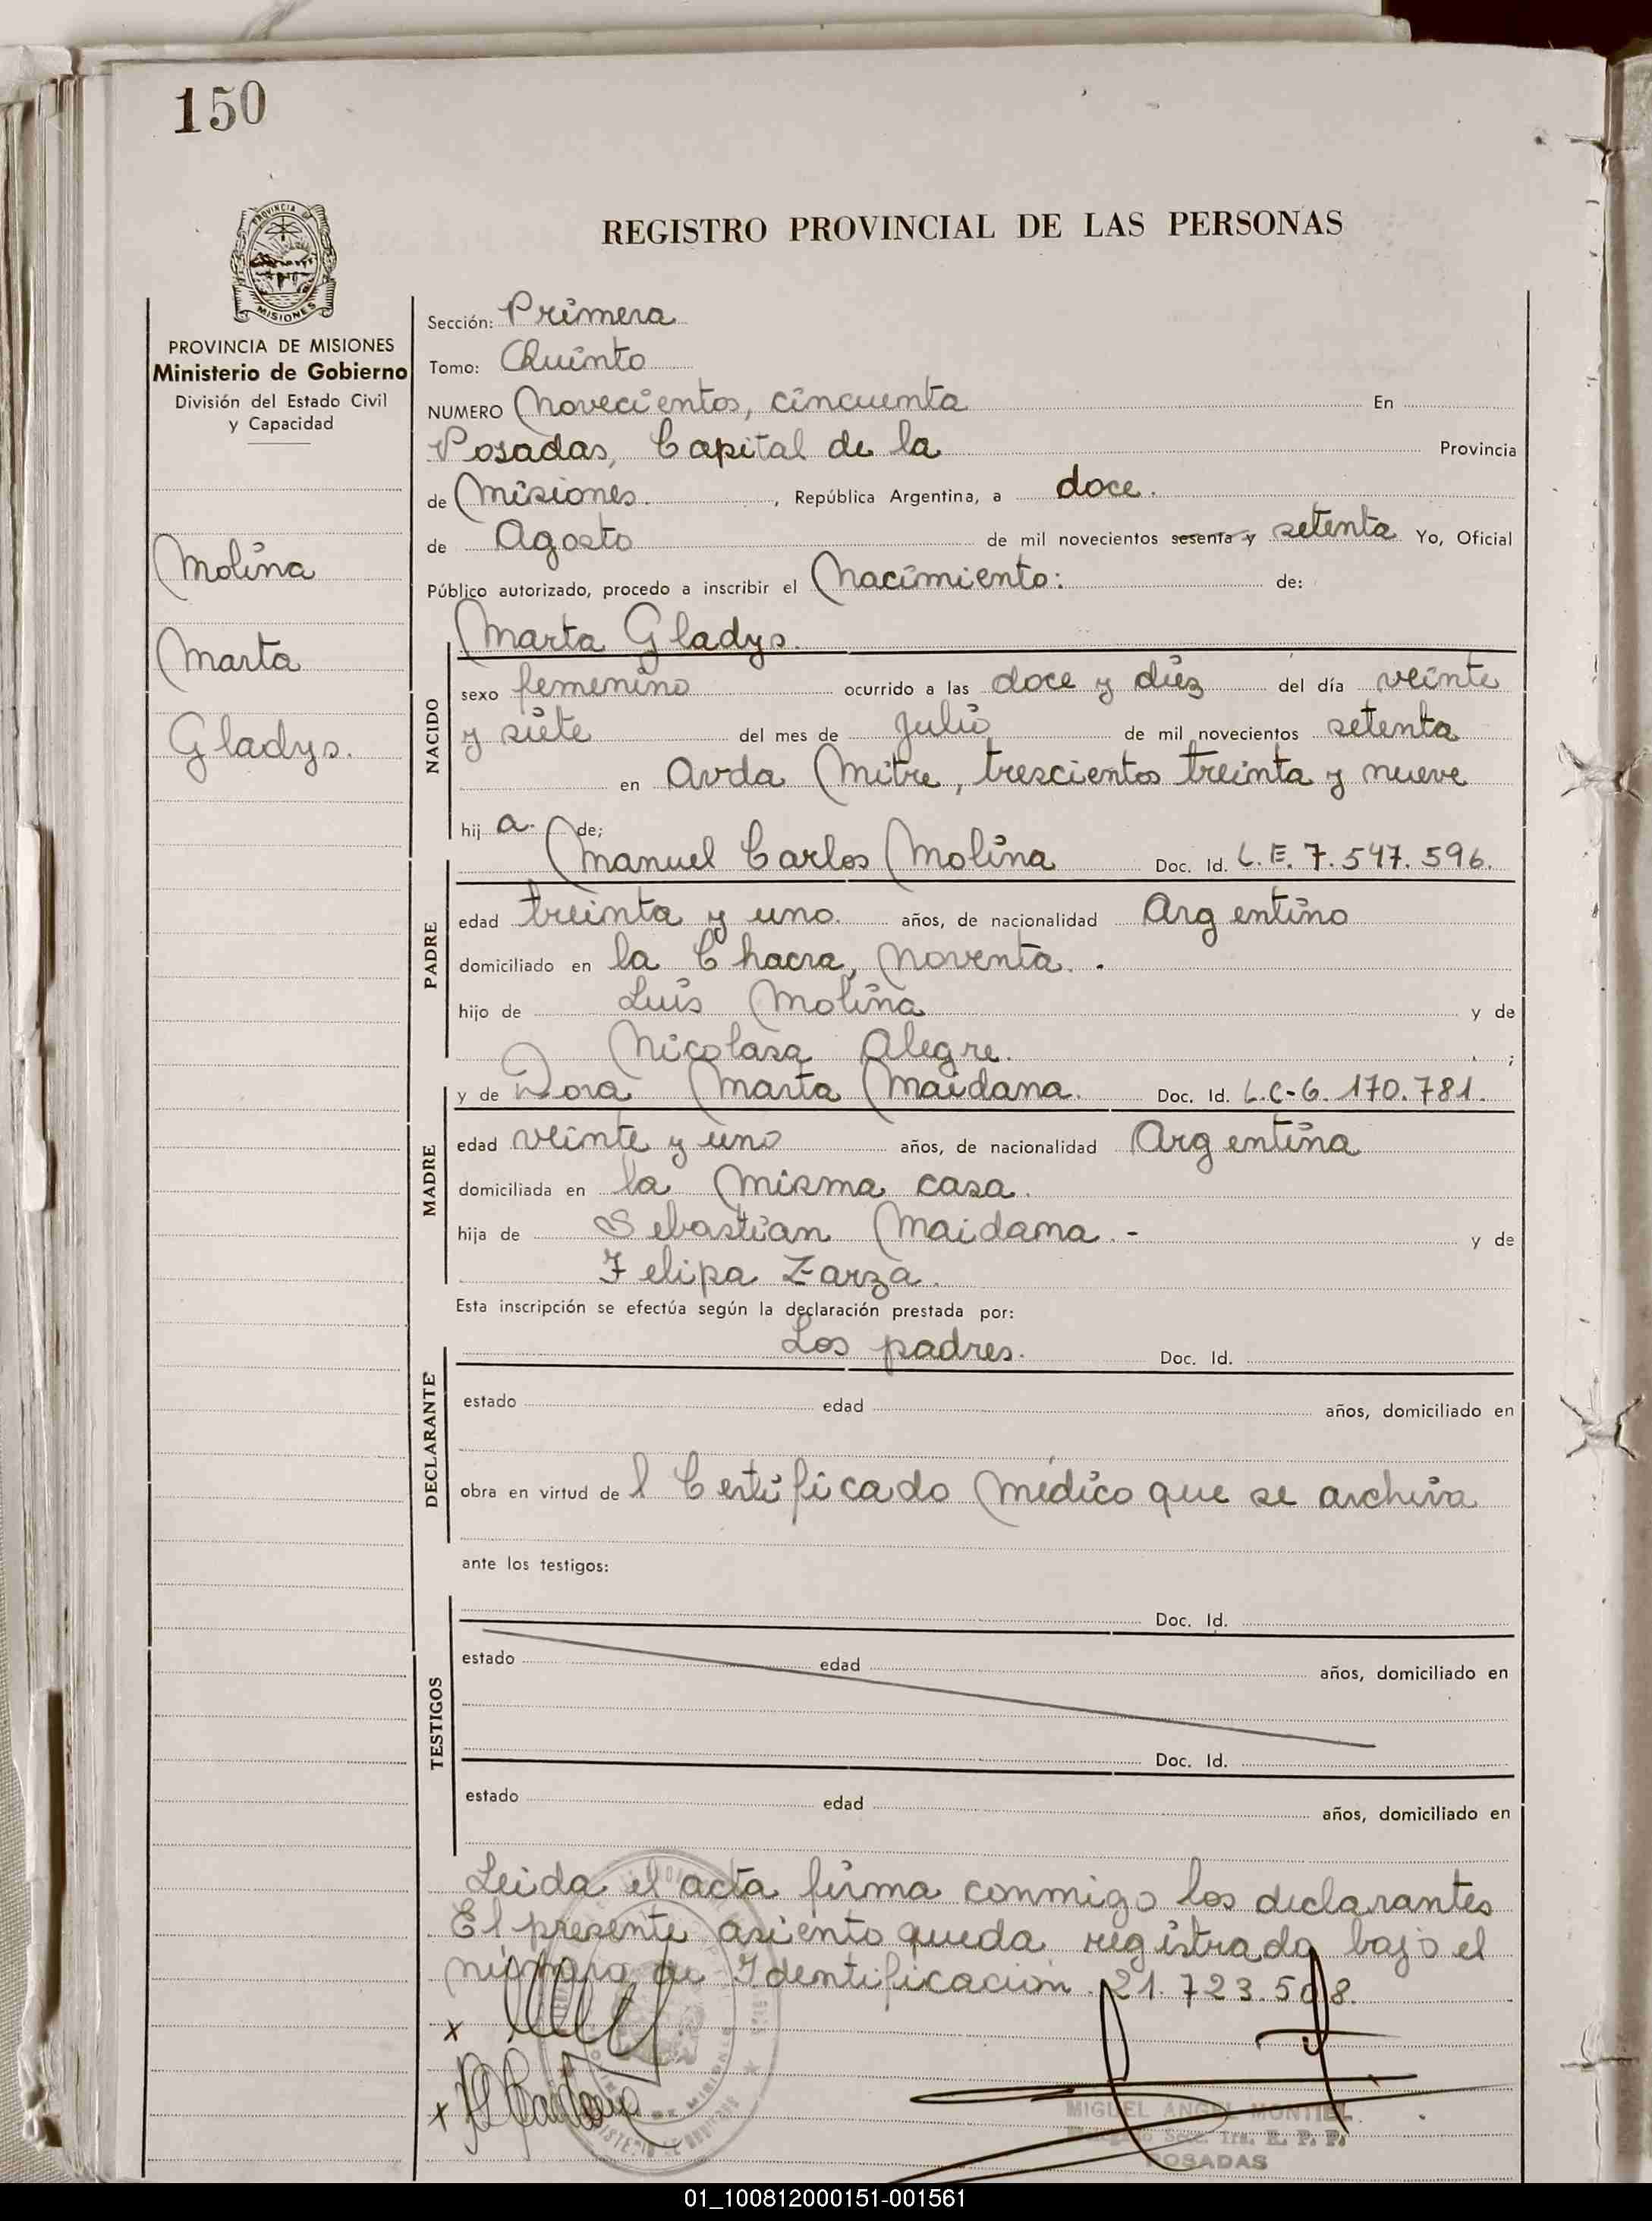 150
PROVINCIA DE
MISIONES
PROVINCIA DE MISIONES
Ministerio de Gobierno
División del Estado Civil
y Capacidad
Molina
Marta
Gladys.
REGISTRO PROVINCIAL DE LAS PERSONAS
Sección: Primera
Tomo: Quinto
NUMERO Novecientos, cincuenta En
Posadas, Capital de la Provincia
de Misiones. , República Argentina, a doce.
de Agosto de mil novecientos sesenta y setenta Yo, Oficial
Público autorizado, procedo a inscribir el Nacimiento: de:
Marta Gladys.
NACIDO
sexo femenino ocurrido a las doce y diez del día veinte
y siete del mes de Julio de mil novecientos setenta
en Avda Mitre, trescientos treinta y nueve
hij a. de;
Manuel Carlos Molina Doc. Id. L.E. 7.547.596.
PADRE
edad treinta y uno. años, de nacionalidad Argentino
domiciliado en la Chacra, noventa. .
hijo de Luis Molina y de
Nicolasa Alegre. ;
y de Dora Marta Maidana. Doc. Id. L.C-6.170.781.
MADRE
edad veinte y uno años, de nacionalidad Argentina
domiciliada en la misma casa.
hija de Sebastian Maidana. - y de
Felipa Zarza.
Esta inscripción se efectúa según la declaración prestada por:
Los padres. Doc. Id.
DECLARANTE
estado edad años, domiciliado en
obra en virtud de l Certificado Médico que se archiva
ante los testigos:
Doc. Id.
TESTIGOS
estado edad años, domiciliado en
Doc. Id.
estado edad años, domiciliado en
Leida el acta firma conmigo los declarantes
El presente asiento queda registrado bajo el
número de Identificación. 21.723.508.
x
x
MIGUEL ANGEL MONTIEL
Secc. 1ra. R. P. P.
POSADAS
01_100812000151-001561